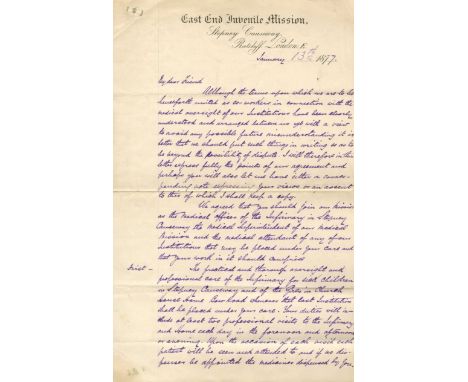 (2)
East End Juvenile Mission,
Stepney Causeway,
Ratcliff, London E.
January 13th 1877.
My dear Friend
Although the terms upon which we are to be
henceforth united as co-workers in connection with the
medical oversight of our Institutions have been clearly
understood and arranged between us yet with a view
to avoid any possible future misunderstanding it is
better that we should put such things in writing so as to
be beyond the possibility of dispute. I will therefore in this
letter express fully the points of our agreement and
perhaps you will also let me have either a corres-
ponding note expressing your views or an assent
to this of which I shall keep a copy.
We agreed that you should join our Mission
as the Medical Officer of the Infirmary in Stepney
Causeway the Medical Superintendent of our Medical
Mission and the medical attendant of any of our
Institutions that may be placed under your care and
that your work in it should comprise
First - The practical and thorough oversight and
professional care of the Infirmary for sick children
in Stepney Causeway and of the Girls in Church
House Home Bow Road whenever that last Institution
shall be placed under your care. Your duties will in-
clude at least two professional visits to the Infirmary
and Home each day in the forenoon and afternoon
or evening. Upon the occasion of each visit each
patient will be seen and attended to and if no dis-
penser be appointed the medicines dispensed by you.